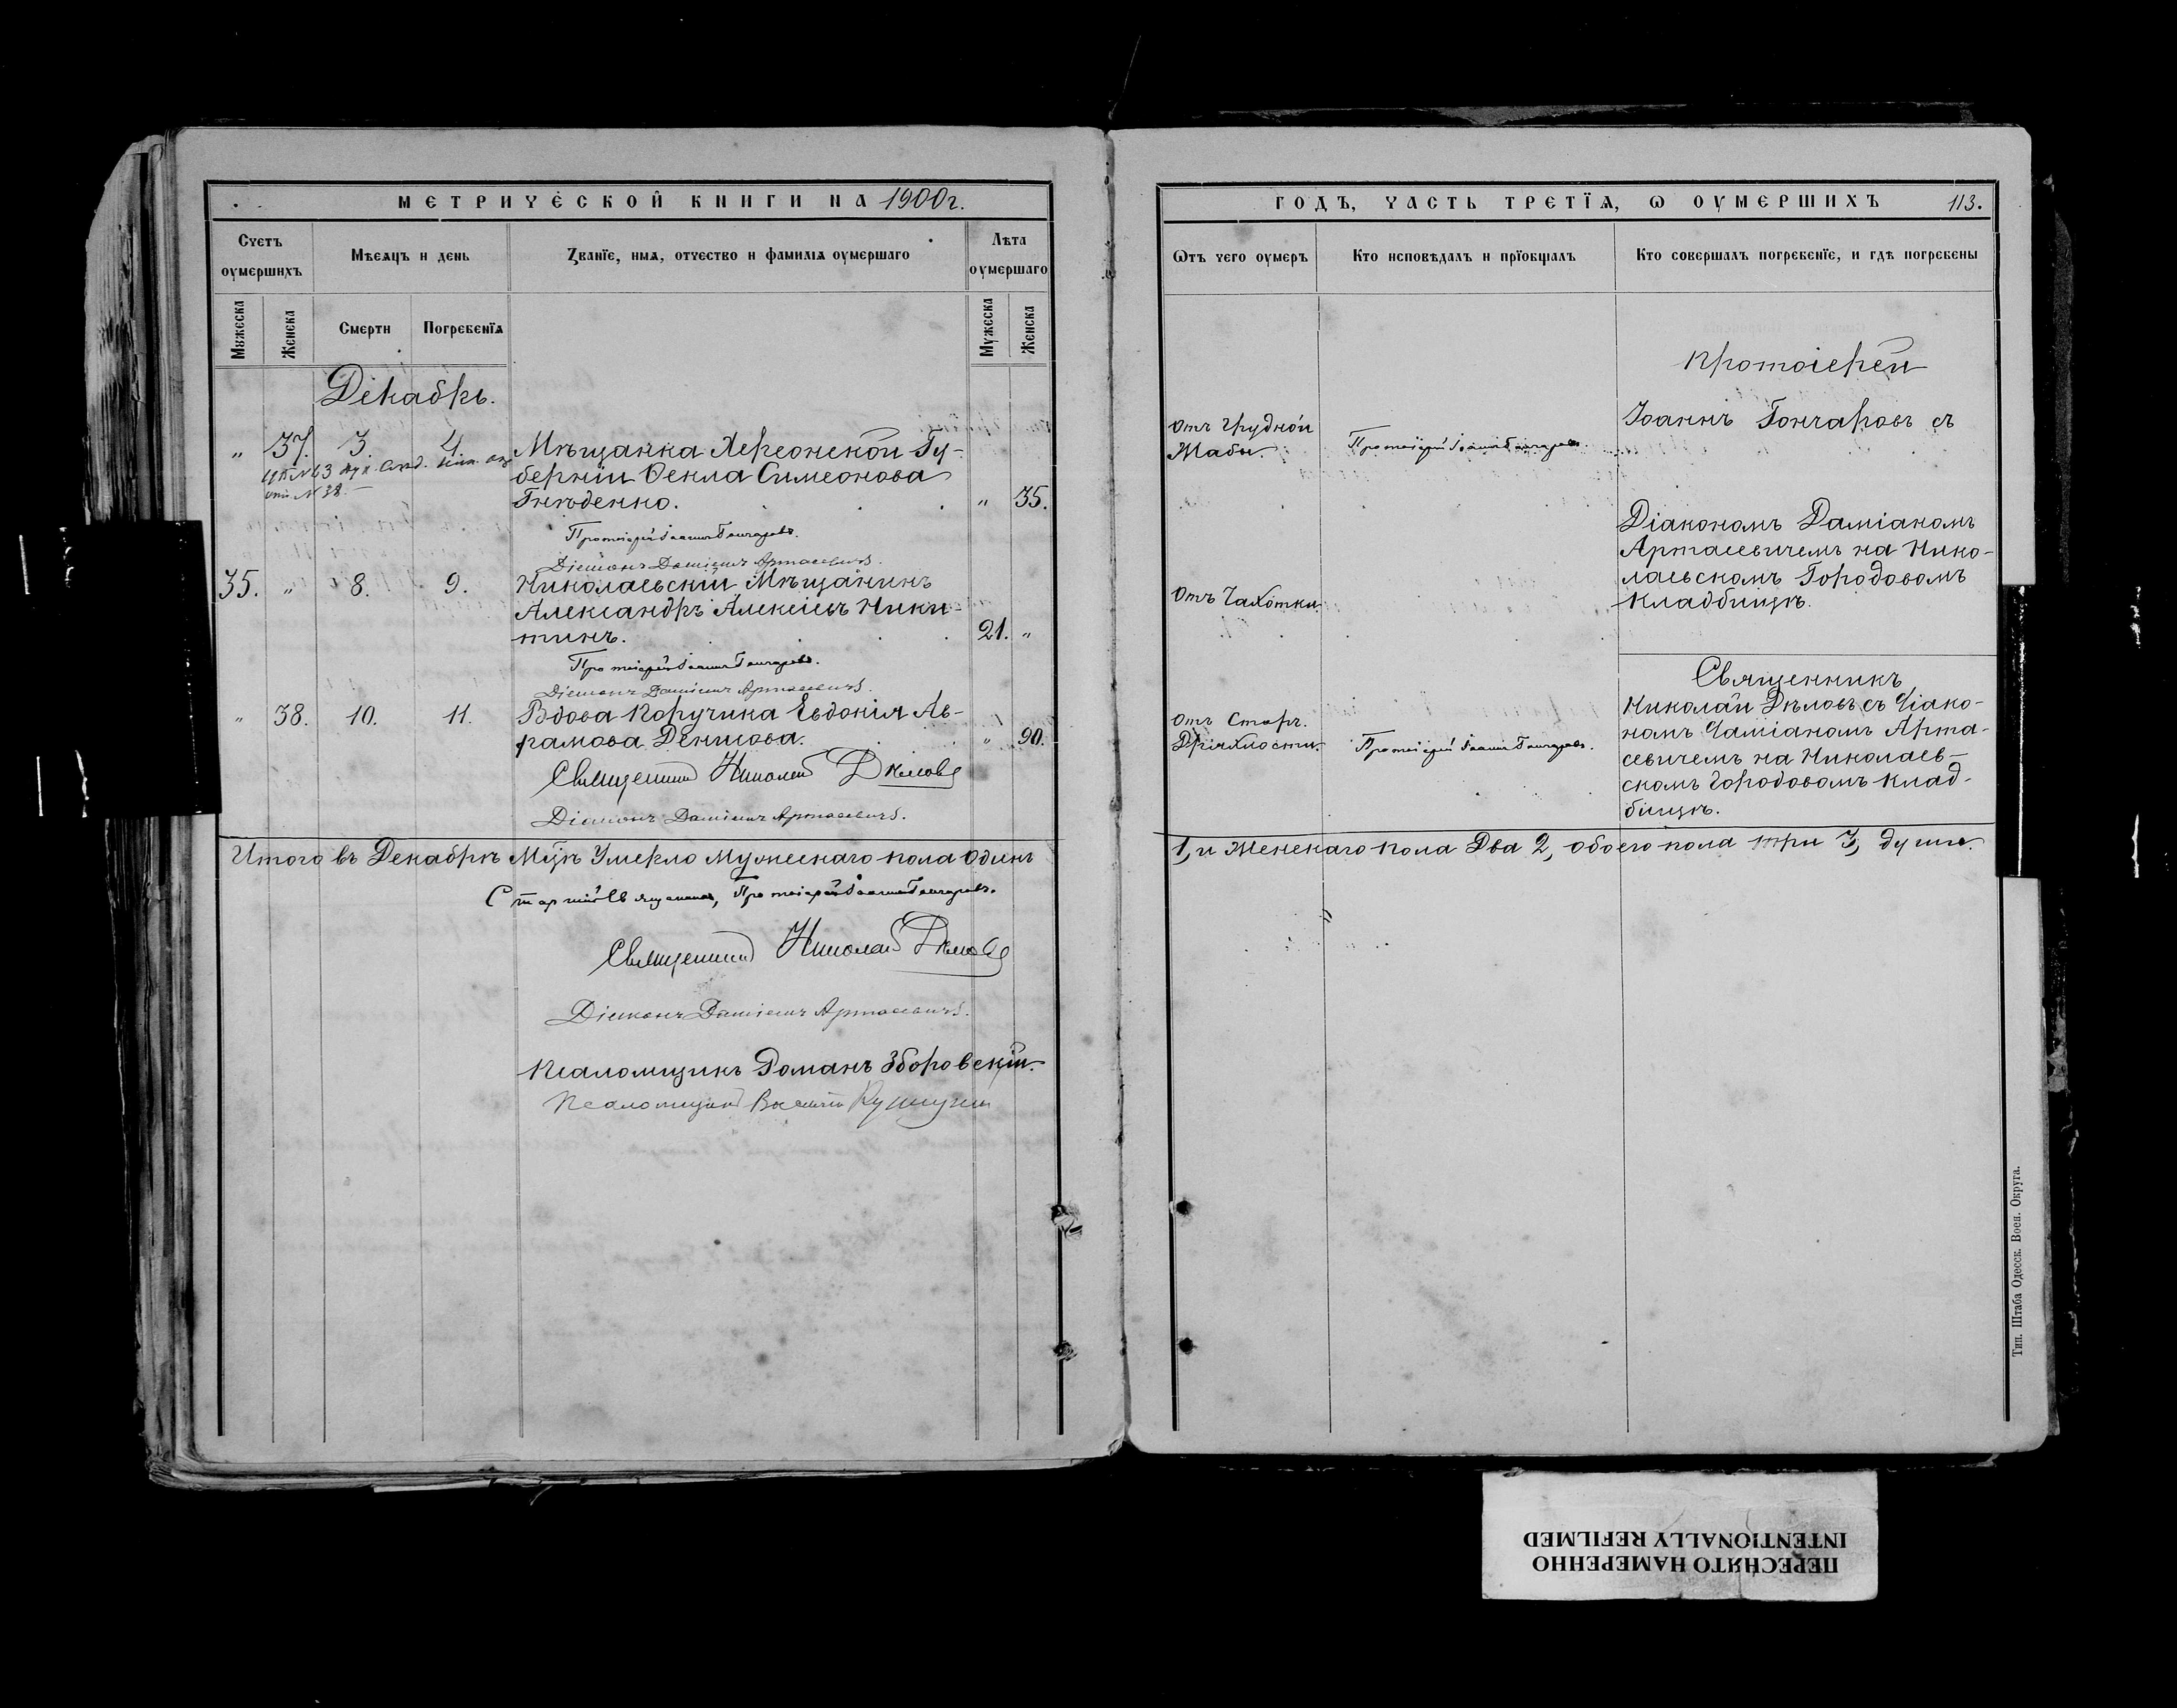 МЕТРИЧЕСКОЙ КНИГИ НА 1900 г.
Счетъ умершихъ
Мѣсяцъ и день
Званїе, имя, отчество и фамилія умершаго
Лѣта умершаго
Мужеска
Женска
Смерти
Погребенїя
Мужеска
Женска
Декабрь.
" 37. 3. 4. Мѣщанка Херсонской Гу-
бернїи Ѳекла Симеонова
Гнѣденко. " 35.
Протоіерей Іоаннъ Гончаровъ.
Діаконъ Даміанъ Артасевичъ.
35. " 8. 9. Николаевскій Мѣщанинъ
Александръ Алексіевъ Ники-
тинъ. 21. "
Протоіерей Іоаннъ Гончаровъ.
Діаконъ Даміанъ Артасевичъ.
" 38. 10. 11. Вдова Поручика Евдокія Ав-
рамова Денисова. " 90.
Священникъ Николай Дѣловъ
Діаконъ Даміанъ Артасевичъ.
Итого въ Декабрѣ Мцѣ Умерло Мужескаго пола одинъ
Старшій Священникъ, Протоіерей Іоаннъ Гончаровъ.
Священникъ Николай Дѣловъ
Діаконъ Даміанъ Артасевичъ.
Псаломщикъ Романъ Зборовскій.
Псаломщикъ
ГОДЪ, ЧАСТЬ ТРЕТЇЯ, Ѡ ОУМЕРШИХЪ 113.
Ѿтъ чего оумеръ
Кто исповѣдалъ и прїобщалъ
Кто совершалъ погребенїе, и гдѣ погребены
Протоіерей
Іоаннъ Гончаровъ съ
Отъ Грудной
Жабы
Протоіерей Іоаннъ Гончаровъ.
Діакономъ Даміаномъ
Артасевичемъ на Нико-
лаевскомъ Городовомъ
Кладбищѣ.
Отъ Чахотки.
Священникъ
Николай Дѣловъ съ Діако-
номъ Даміаномъ Арта-
севичемъ на Николаев-
скомъ Городовомъ клад-
бищѣ.
Отъ Старч.
Дряхлости.
Протоіерей Іоаннъ Гончаровъ.
1, и Женскаго пола Два 2, обоего пола три 3, души.
Тип. Штаба Одесск. Воен. Округа.
ПЕРЕСНЯТО НАМЕРЕННО
INTENTIONALLY REFILMED